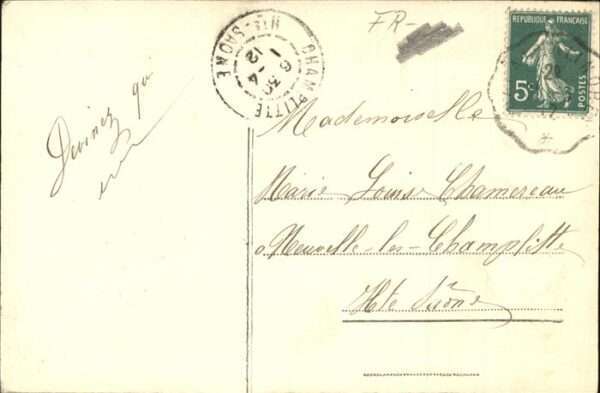 FR-
CHAMPLITTE
HTE-SAONE
6 30
1 -4
12
REPUBLIQUE FRANÇAISE
5c
POSTES
Devinez qui
Mademoiselle
Marie Louise Chamereau
à Neuvelle-les-Champlitte
Hte Saône